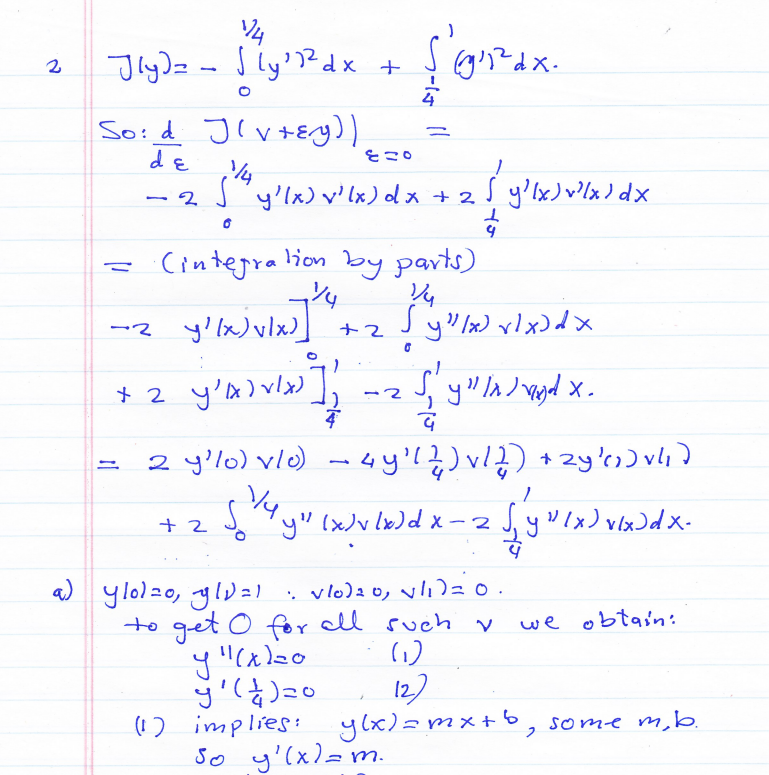 2 J(y) = - ∫_0^{1/4} (y')² dx + ∫_{1/4}^1 (y')² dx.
So: d/dε J(v+εy)|_{ε=0} =
-2 ∫_0^{1/4} y'(x) v'(x) dx + 2 ∫_{1/4}^1 y'(x) v'(x) dx
= (integration by parts)
-2 y'(x) v(x)]_0^{1/4} + 2 ∫_0^{1/4} y''(x) v(x) dx
+ 2 y'(x) v(x)]_{1/4}^1 - 2 ∫_{1/4}^1 y''(x) v(x) dx.
= 2 y'(0) v(0) - 4 y'(1/4) v(1/4) + 2y'(1) v(1)
+ 2 ∫_0^{1/4} y''(x) v(x) dx - 2 ∫_{1/4}^1 y''(x) v(x) dx.
a) y(0)=0, y(1)=1 : v(0)=0, v(1)=0.
to get 0 for all such v we obtain:
y''(x)=0 (1)
y'(1/4)=0 (2)
(1) implies: y(x)=mx+b, some m,b.
So y'(x)=m.